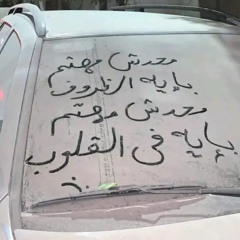 محدش مهتم
بإيه الظروف
محدش مهتم
بإيه فى القلوب